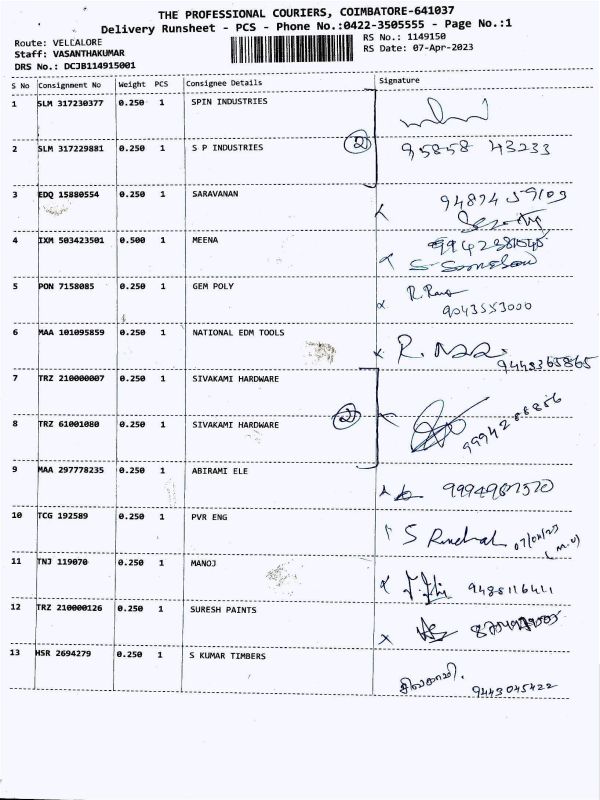 THE PROFESSIONAL COURIERS, COIMBATORE-641037
Delivery Runsheet - PCS - Phone No.:0422-3505555 - Page No.:1
Route: VELLALORE RS No.: 1149150
Staff: VASANTHAKUMAR RS Date: 07-Apr-2023
DRS No.: DCJB114915001
S No Consignment No Weight PCS Consignee Details Signature
1 SLM 317230377 0.250 1 SPIN INDUSTRIES
2 SLM 317229881 0.250 1 S P INDUSTRIES 2 95858 43233
3 EDQ 15880554 0.250 1 SARAVANAN
4 IXM 503423501 0.500 1 MEENA
5 PON 7158085 0.250 1 GEM POLY
9043553000
6 MAA 101095859 0.250 1 NATIONAL EDM TOOLS
9448365865
7 TRZ 210000007 0.250 1 SIVAKAMI HARDWARE
8 TRZ 61001080 0.250 1 SIVAKAMI HARDWARE 2
9 MAA 297778235 0.250 1 ABIRAMI ELE
10 TCG 192589 0.250 1 PVR ENG
11 TNJ 119070 0.250 1 MANOJ
12 TRZ 210000126 0.250 1 SURESH PAINTS
13 HSR 2694279 0.250 1 S KUMAR TIMBERS
9443045422